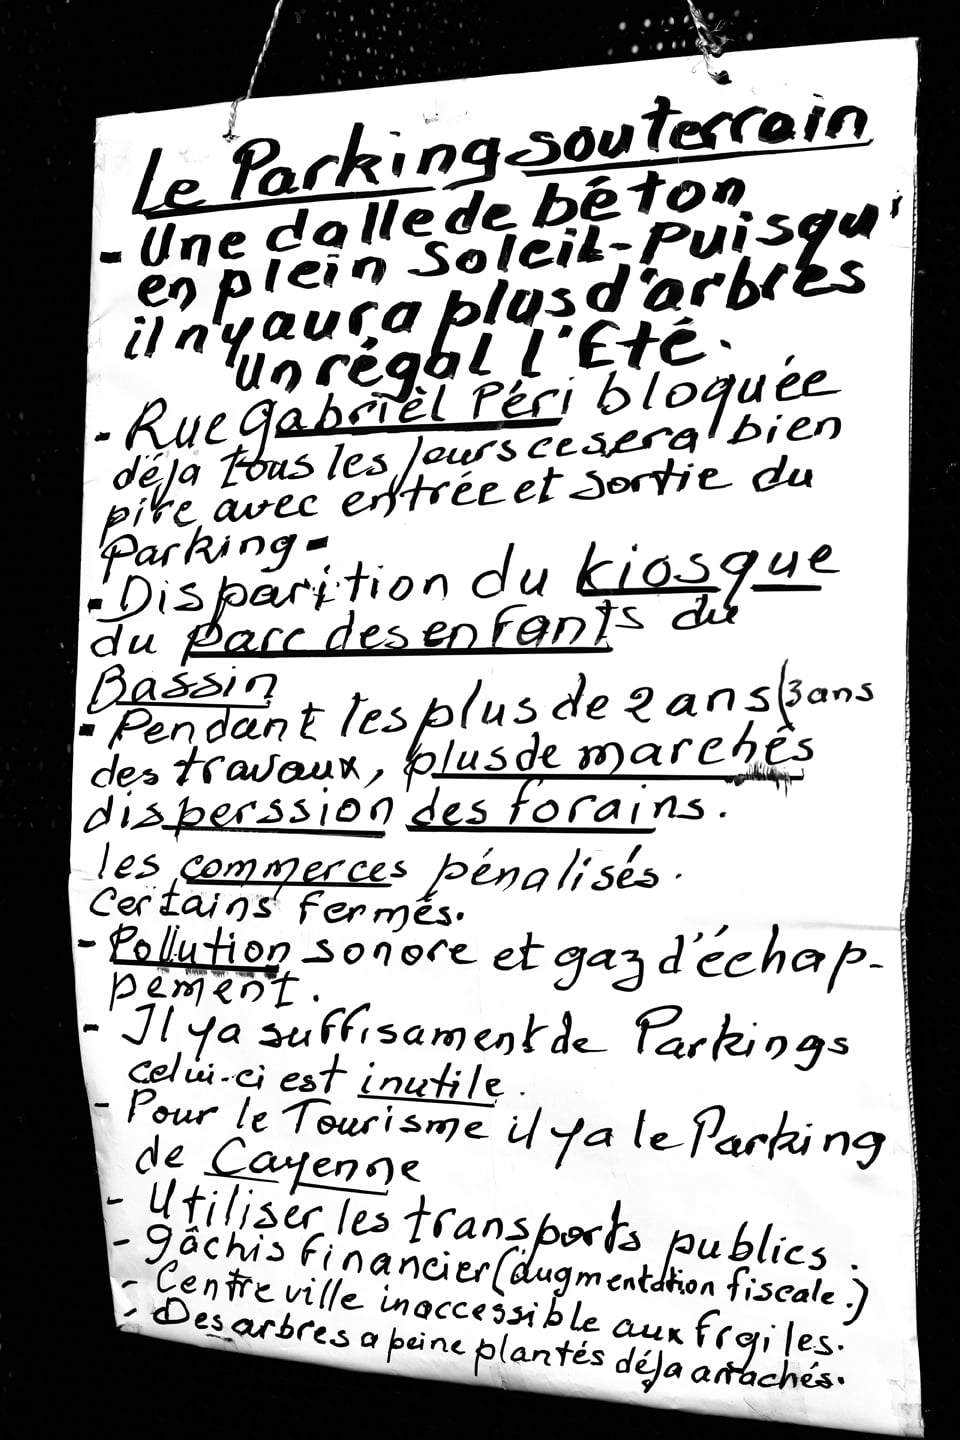 Le Parking souterrain
- Une dalle de béton
en plein Soleil - Puisqu'
il n'y aura plus d'arbres
Un régal l'Eté.
- Rue Gabrièl Péri bloquée
déja tous les jours ce sera bien
pire avec entrée et sortie du
Parking -
- Disparition du kiosque
du parc des enfants du
Bassin
- Pendant les plus de 2 ans (3 ans
des travaux, plus de marchés
disperssion des forains.
les commerces pénalisés.
Certains fermés.
- Pollution sonore et gaz d'échap-
pement.
- Il y a suffisament de Parkings
celui-ci est inutile.
- Pour le Tourisme il y a le Parking
de Cayenne
- Utiliser les transports publics.
- gâchis financier (augmentation fiscale.)
- Centre ville inaccessible aux fragiles.
- Des arbres a peine plantés déja arrachés.